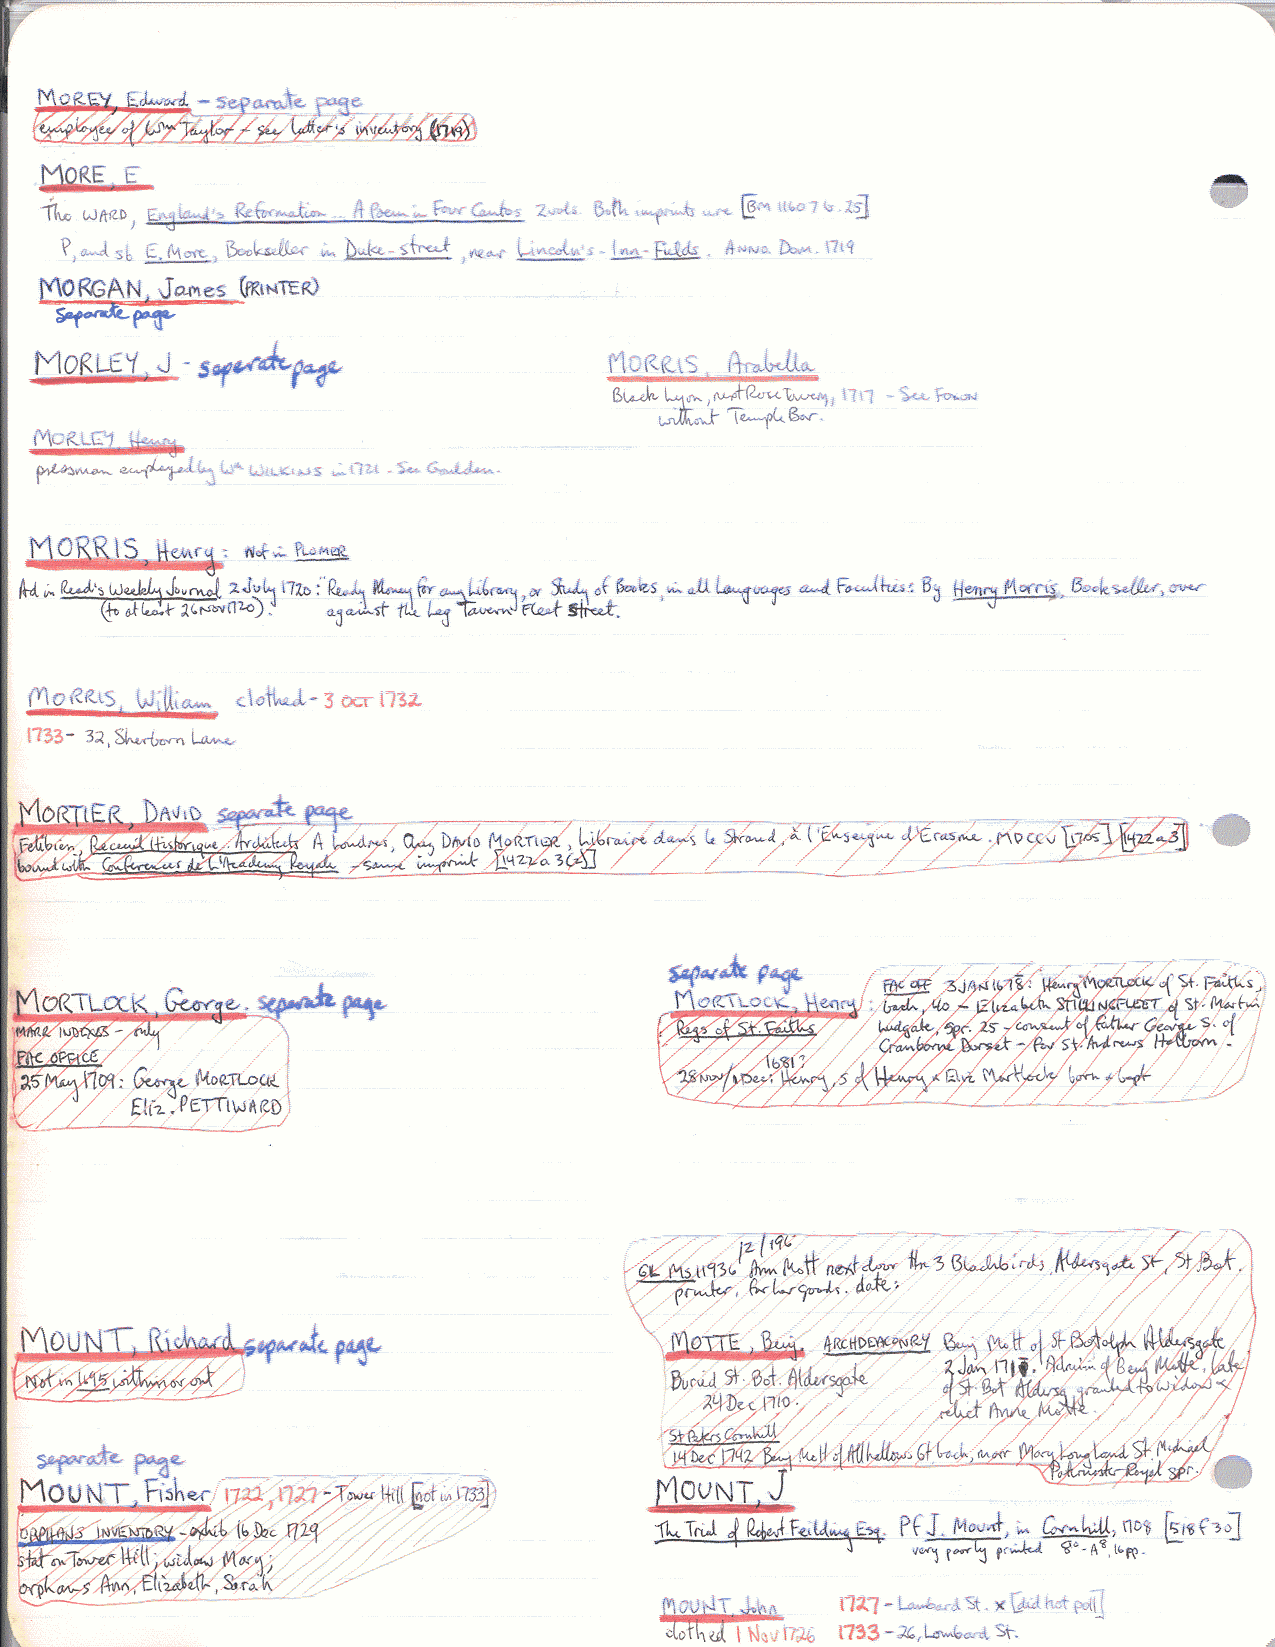 MOREY, Edward - separate page
employee of Wm Taylor - see latter's inventory (1719)
MORE, E
Tho WARD, England's Reformation... A Poem in Four Cantos 2 vols. Both imprints are [BM 11607 b. 25]
P, and sb E. More, Bookseller in Duke-street, near Lincoln's-Inn-Fields. ANNO. Dom. 1719
MORGAN, James (PRINTER)
separate page
MORLEY, J - seperate page
MORRIS, Arabella
Black Lyon, next Rose Tavern, 1717 - See Foxon
without Temple Bar.
MORLEY, Henry
pressman employed by Wm WILKINS in 1721 - See Goulden.
MORRIS, Henry: Not in PLOMER
Ad in Read's Weekly Journal 2 July 1720: "Ready Money for any Library, or Study of Books, in all Languages and Faculties: By Henry Morris, Bookseller, over
(to at least 26 Nov 1720). against the Leg Tavern Fleet Street.
MORRIS, William clothed - 3 OCT 1732
1733 - 32, Sherborn Lane
MORTIER, DAVID separate page
Felibien, Receuil Historique.. Architects A Londres, Chez DAVID MORTIER, Libraire dans le Strand, à l'Enseigne d'Erasme. MDCCV [1705] [1422 a 3]
bound with Conferences de L'Academy Royale - same imprint [1422 a 3(2)]
separate page
MORTLOCK, George. separate page
MARR INDEXES - only
FAC OFFICE
25 May 1709: George MORTLOCK
Eliz. PETTIWARD
MORTLOCK, Henry: FAC OFF 3 JAN 1678: Henry MORTLOCK of St. Faiths,
bach, 40 - Elizabeth STILLINGFLEET of St. Martin
Ludgate, spr. 25 - consent of father George S. of
Cranborne Dorset - for St. Andrews Holborn.
Regs of St. Faiths
1681?
28 Nov/1 Dec: Henry, s of Henry & Eliz Mortlock born & bapt
12/196
GL Ms 11936 Ann Mott next door the 3 Blackbirds, Aldersgate St, St Bot.
printer, for her goods. date:
MOUNT, Richard separate page
Not in 1695 within or out
MOTTE, Benj. ARCHDEACONRY Benj Mott of St Botolph Aldersgate
Buried St. Bot. Aldersgate
24 Dec 1710.
2 Jan 171. Admin of Benj Motte, late
of St Bot Aldersg granted to widow &
relict Anne Motte.
St Peters Cornhill
14 Dec 1742 Benj Mott of Allhallows Gt, bach, marr Mary Longland St. Michael
Paternoster Royal spr.
separate page
MOUNT, Fisher 1722, 1727 - Tower Hill [not in 1733]
ORPHANS INVENTORY - exhib 16 Dec 1729
stat on Tower Hill; widow Mary;
orphans Ann, Elizabeth, Sarah
MOUNT, J
The Trial of Robert Feilding Esq. P f J. Mount, in Cornhill, 1708 [518 f 30]
very poorly printed 8º - A⁸, 16 pp.
MOUNT, John 1727 - Lombard St. x [did not poll]
clothed 1 Nov 1726 1733 - 26, Lombard St.